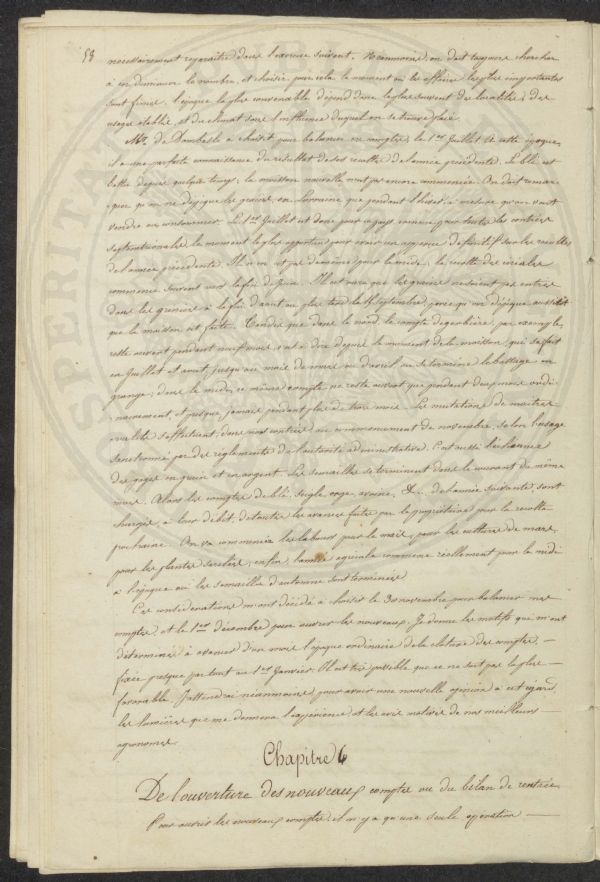 53
nécessairement reparaître dans l'exercice suivant. Néanmoins, on doit toujours chercher
à en diminuer le nombre, et choisir pour cela le moment où les affaires les plus importantes
sont finies. L'époque la plus convenable dépend donc le plus souvent des localités, des
usages établis, et du climat sous l'influence duquel on se trouve placé.
Mr. de Dombasle a choisi pour balancer ses comptes, le 1er Juillet. A cette époque,
il a une parfaite connaissance du résultat de ses récoltes de l'année précédente. Le blé est
battu depuis quelque temps; la moisson nouvelle n'est pas encore commencée. On doit remar-
quer qu'on ne dépique les graines, en Lorraine que pendant l'hiver, à mesure qu'on veut
vendre ou consommer. Le 1er Juillet est donc pour ce pays comme pour toutes les contrées
septentrionales, le moment le plus opportun pour avoir un apperçu définitif sur les récoltes
de l'année précédente. Il n'en est pas de même pour le midi; la récolte des céréales
commence souvent vers la fin de juin. Il est rare que les graines ne soient pas entrées
dans les greniers à la fin d'aout au plus tard le 15 septembre, parce qu'on dépique aussitôt
que la moisson est faite. Tandis que dans le nord, le compte de gerbière, par exemple,
reste ouvert pendant neuf mois, c'est à dire depuis le moment de la moisson, qui se fait
en Juillet et aout, jusqu'au mois de mars ou d'avril où se termine le battage en
grange; dans le midi, ce même compte ne reste ouvert que pendant deux mois ordi-
nairement, et presque jamais pendant plus de trois mois. Les mutations de maîtres
valets s'effectuent, dans nos contrées, au commencement de novembre, selon l'usage
sanctionné par des réglements de l'autorité administrative. C'est aussi l'échéance
des gages en grain et en argent. Les semailles se terminent dans le courant du même
mois. Alors les comptes de blé, seigle, orge, avoine, &.. de l'année suivante, sont
chargés, à leur débit, de toutes les avances faites par le propriétaire pour la récolte
prochaine. On va commencer les labours pour le maïs, pour les cultures de mars,
pour les plantes sarclées; enfin, l'année agricole commence réellement pour le midi
à l'époque où les semailles d'automne sont terminées.
Ces considérations m'ont décidé à choisir le 30 novembre pour balancer mes
comptes, et le 1er décembre pour ouvrir les nouveaux. Je donne les motifs qui m'ont
déterminé à avancer d'un mois l'époque ordinaire de la cloture des comptes, —
fixée presque partout au 1er Janvier. Il est très possible que ce ne soit pas la plus —
favorable. J'attendrai néanmoins, pour avoir une nouvelle opinion à cet égard,
les lumières que me donnera l'expérience et les avis motivés de nos meilleurs —
agronomes.
Chapitre 6
De l'ouverture des nouveaux comptes ou du bilan de rentrée.
Pour ouvrir les nouveaux comptes, il n'y a qu'une seule opération —